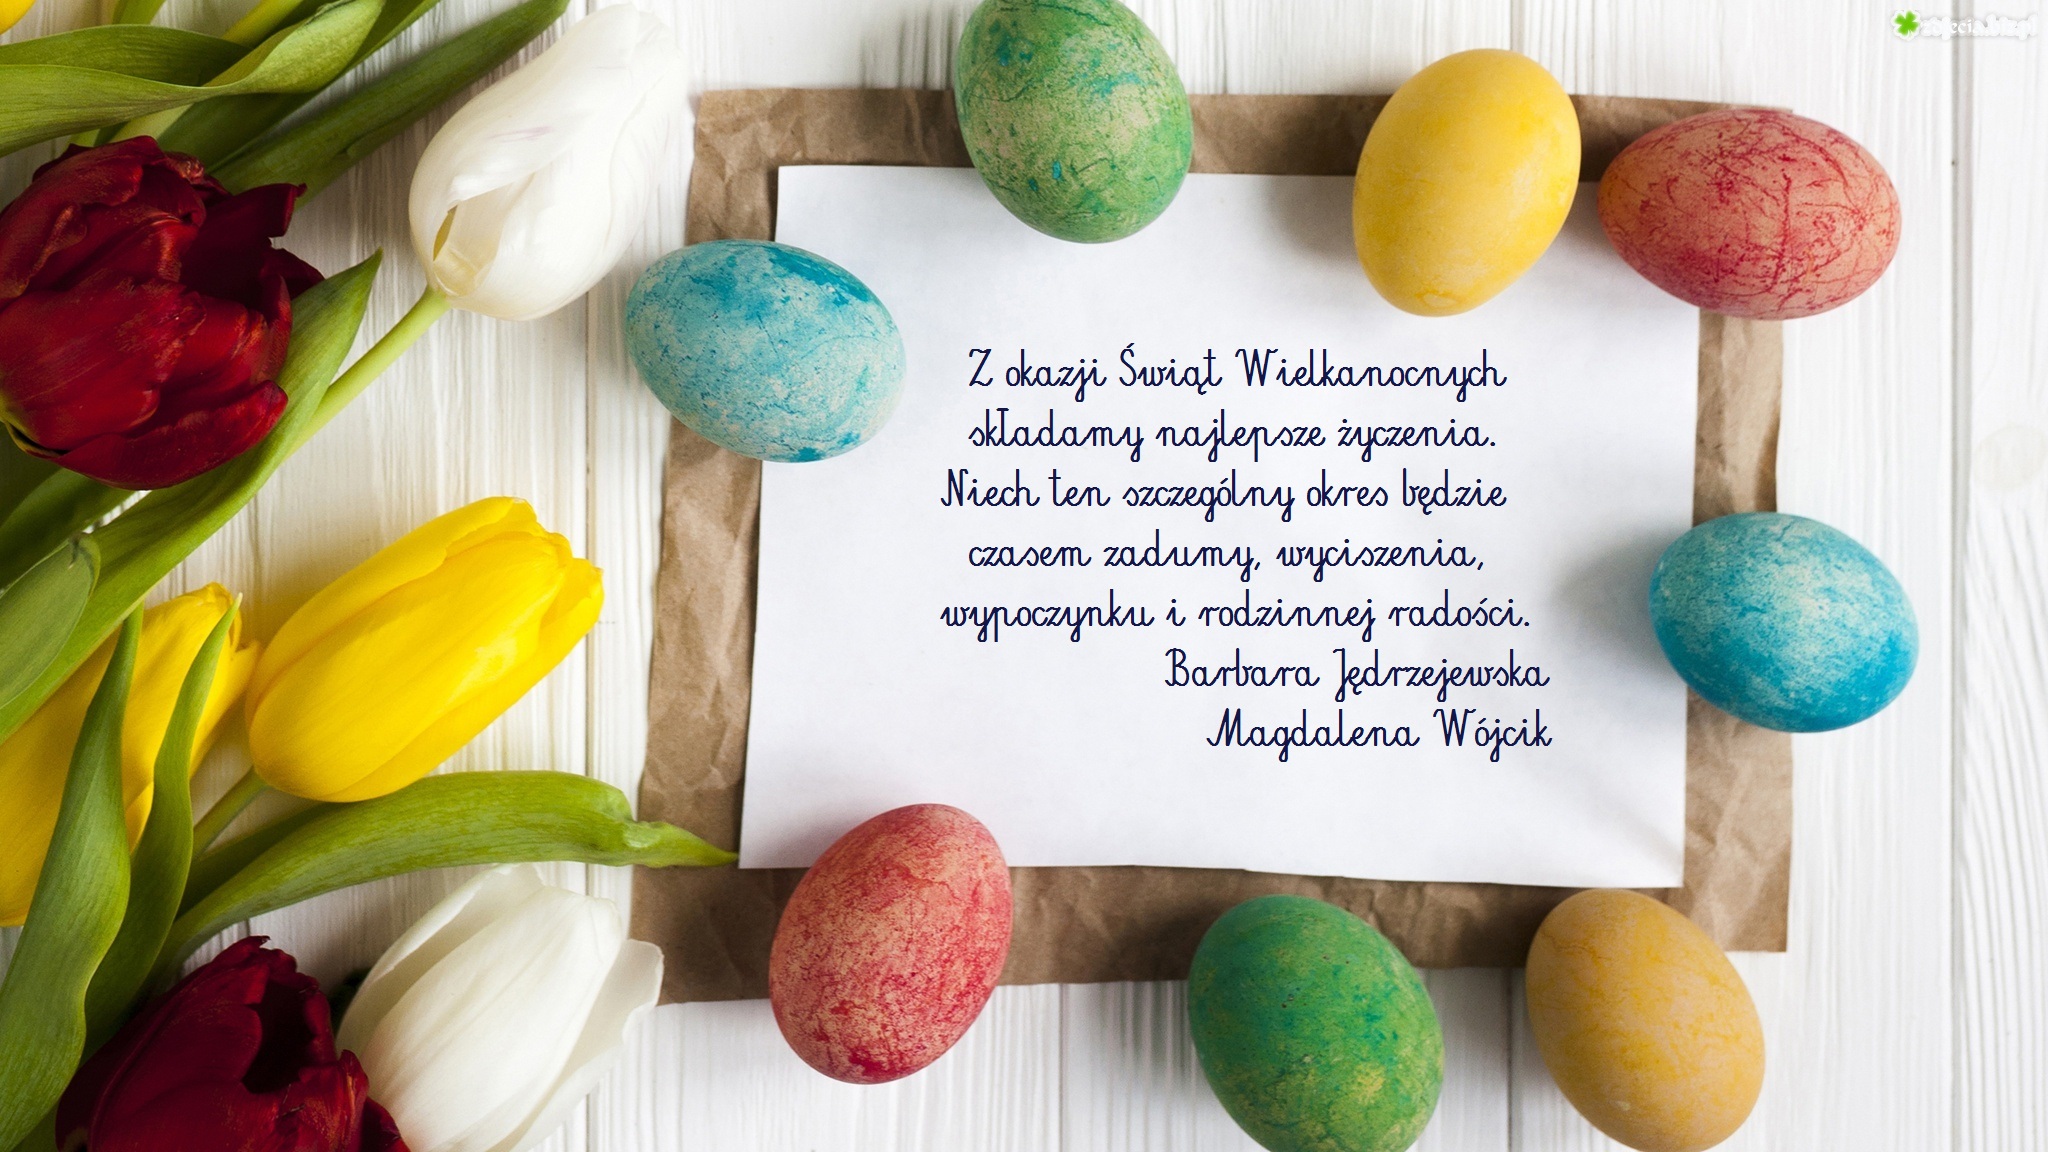 Z okazji Świąt Wielkanocnych
składamy najlepsze życzenia.
Niech ten szczególny okres będzie
czasem zadumy, wyciszenia,
wypoczynku i rodzinnej radości.
Barbara Jędrzejewska
Magdalena Wójcik